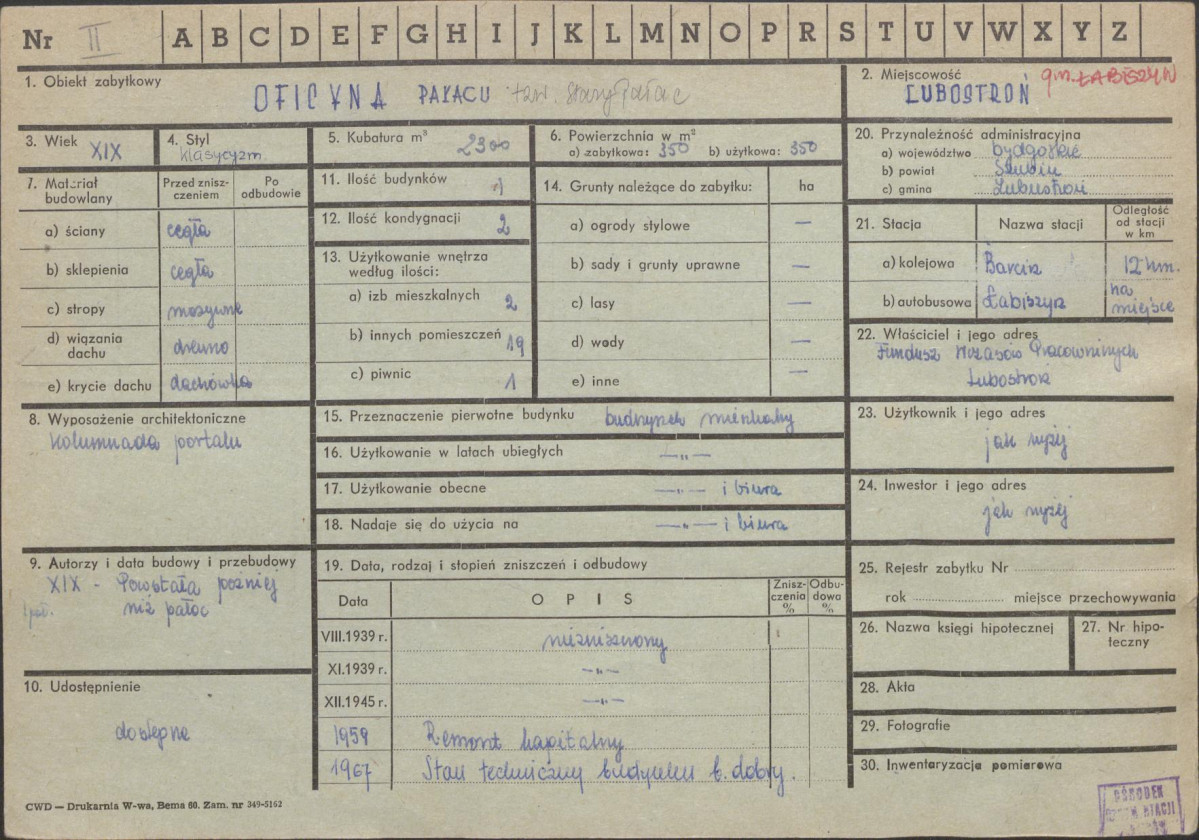 Nr II A B C D E F G H I J K L M N O P R S T U V W X Y Z
1. Obiekt zabytkowy
OFICYNA PAŁACU tzw. Stary Pałac
2. Miejscowość
LUBOSTROŃ gm. ŁABISZYN
3. Wiek XIX
4. Styl
klasycyzm.
5. Kubatura m³ 2300
6. Powierzchnia w m²
a) zabytkowa: 350 b) użytkowa: 350
7. Materiał budowlany
Przed zniszczeniem
Po odbudowie
a) ściany cegła
b) sklepienia cegła
c) stropy masywne
d) wiązania dachu drewno
e) krycie dachu dachówka
8. Wyposażenie architektoniczne
Kolumnada portalu
9. Autorzy i data budowy i przebudowy
XIX - Powstała później
niż pałac
10. Udostępnienie
dostępne
11. Ilość budynków 1
12. Ilość kondygnacji 2
13. Użytkowanie wnętrza
według ilości:
a) izb mieszkalnych 2
b) innych pomieszczeń 19
c) piwnic 1
14. Grunty należące do zabytku: ha
a) ogrody stylowe —
b) sady i grunty uprawne —
c) lasy —
d) wody —
e) inne —
15. Przeznaczenie pierwotne budynku budynek mieszkalny
16. Użytkowanie w latach ubiegłych —„—
17. Użytkowanie obecne —„— i biura
18. Nadaje się do użycia na —„— i biura
19. Data, rodzaj i stopień zniszczeń i odbudowy
Data
OPIS
Zniszczenia %
Odbudowa %
VIII.1939 r. niezniszczony
XI.1939 r. —„—
XII.1945 r. —„—
1959 Remont kapitalny
1967 Stan techniczny budynku b. dobry.
20. Przynależność administracyjna
a) województwo bydgoskie
b) powiat Szubin
c) gmina Lubostroń
21. Stacja
Nazwa stacji
Odległość od stacji w km
a) kolejowa Barcin 12 km.
b) autobusowa Łabiszyn na miejsce
22. Właściciel i jego adres
Fundusz Wczasów Pracowniczych
Lubostroń
23. Użytkownik i jego adres
jak wyżej
24. Inwestor i jego adres
jak wyżej
25. Rejestr zabytku Nr
rok miejsce przechowywania
26. Nazwa księgi hipotecznej
27. Nr hipoteczny
28. Akta
29. Fotografie
30. Inwentaryzacja pomiarowa
CWD — Drukarnia W-wa, Bema 60. Zam. nr 349-5162
OŚRODEK